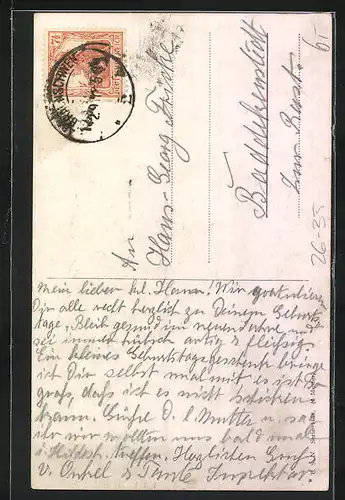 An
Hans-Georg Fricke
Baddeckenstedt
Zur Rast.
26-35
Mein lieber kl. Hanna! Wir gratulieren
Dir alle recht herzlich zu Deinem Geburts-
tage, Bleib gesund im neuen Jahre, und
sei immer hübsch artig & fleißig.
Ein kleines Geburtstagsgeschenk bringe
ich Dir selbst mal mit es ist so
groß, daß ich es nicht schicken
kann. Grüße D. l. Mutter u. sa-
ge wir wollten uns bald mal
i. Hildesh. treffen. Herzlichen Gruß
v. Onkel & Tante Inspektor